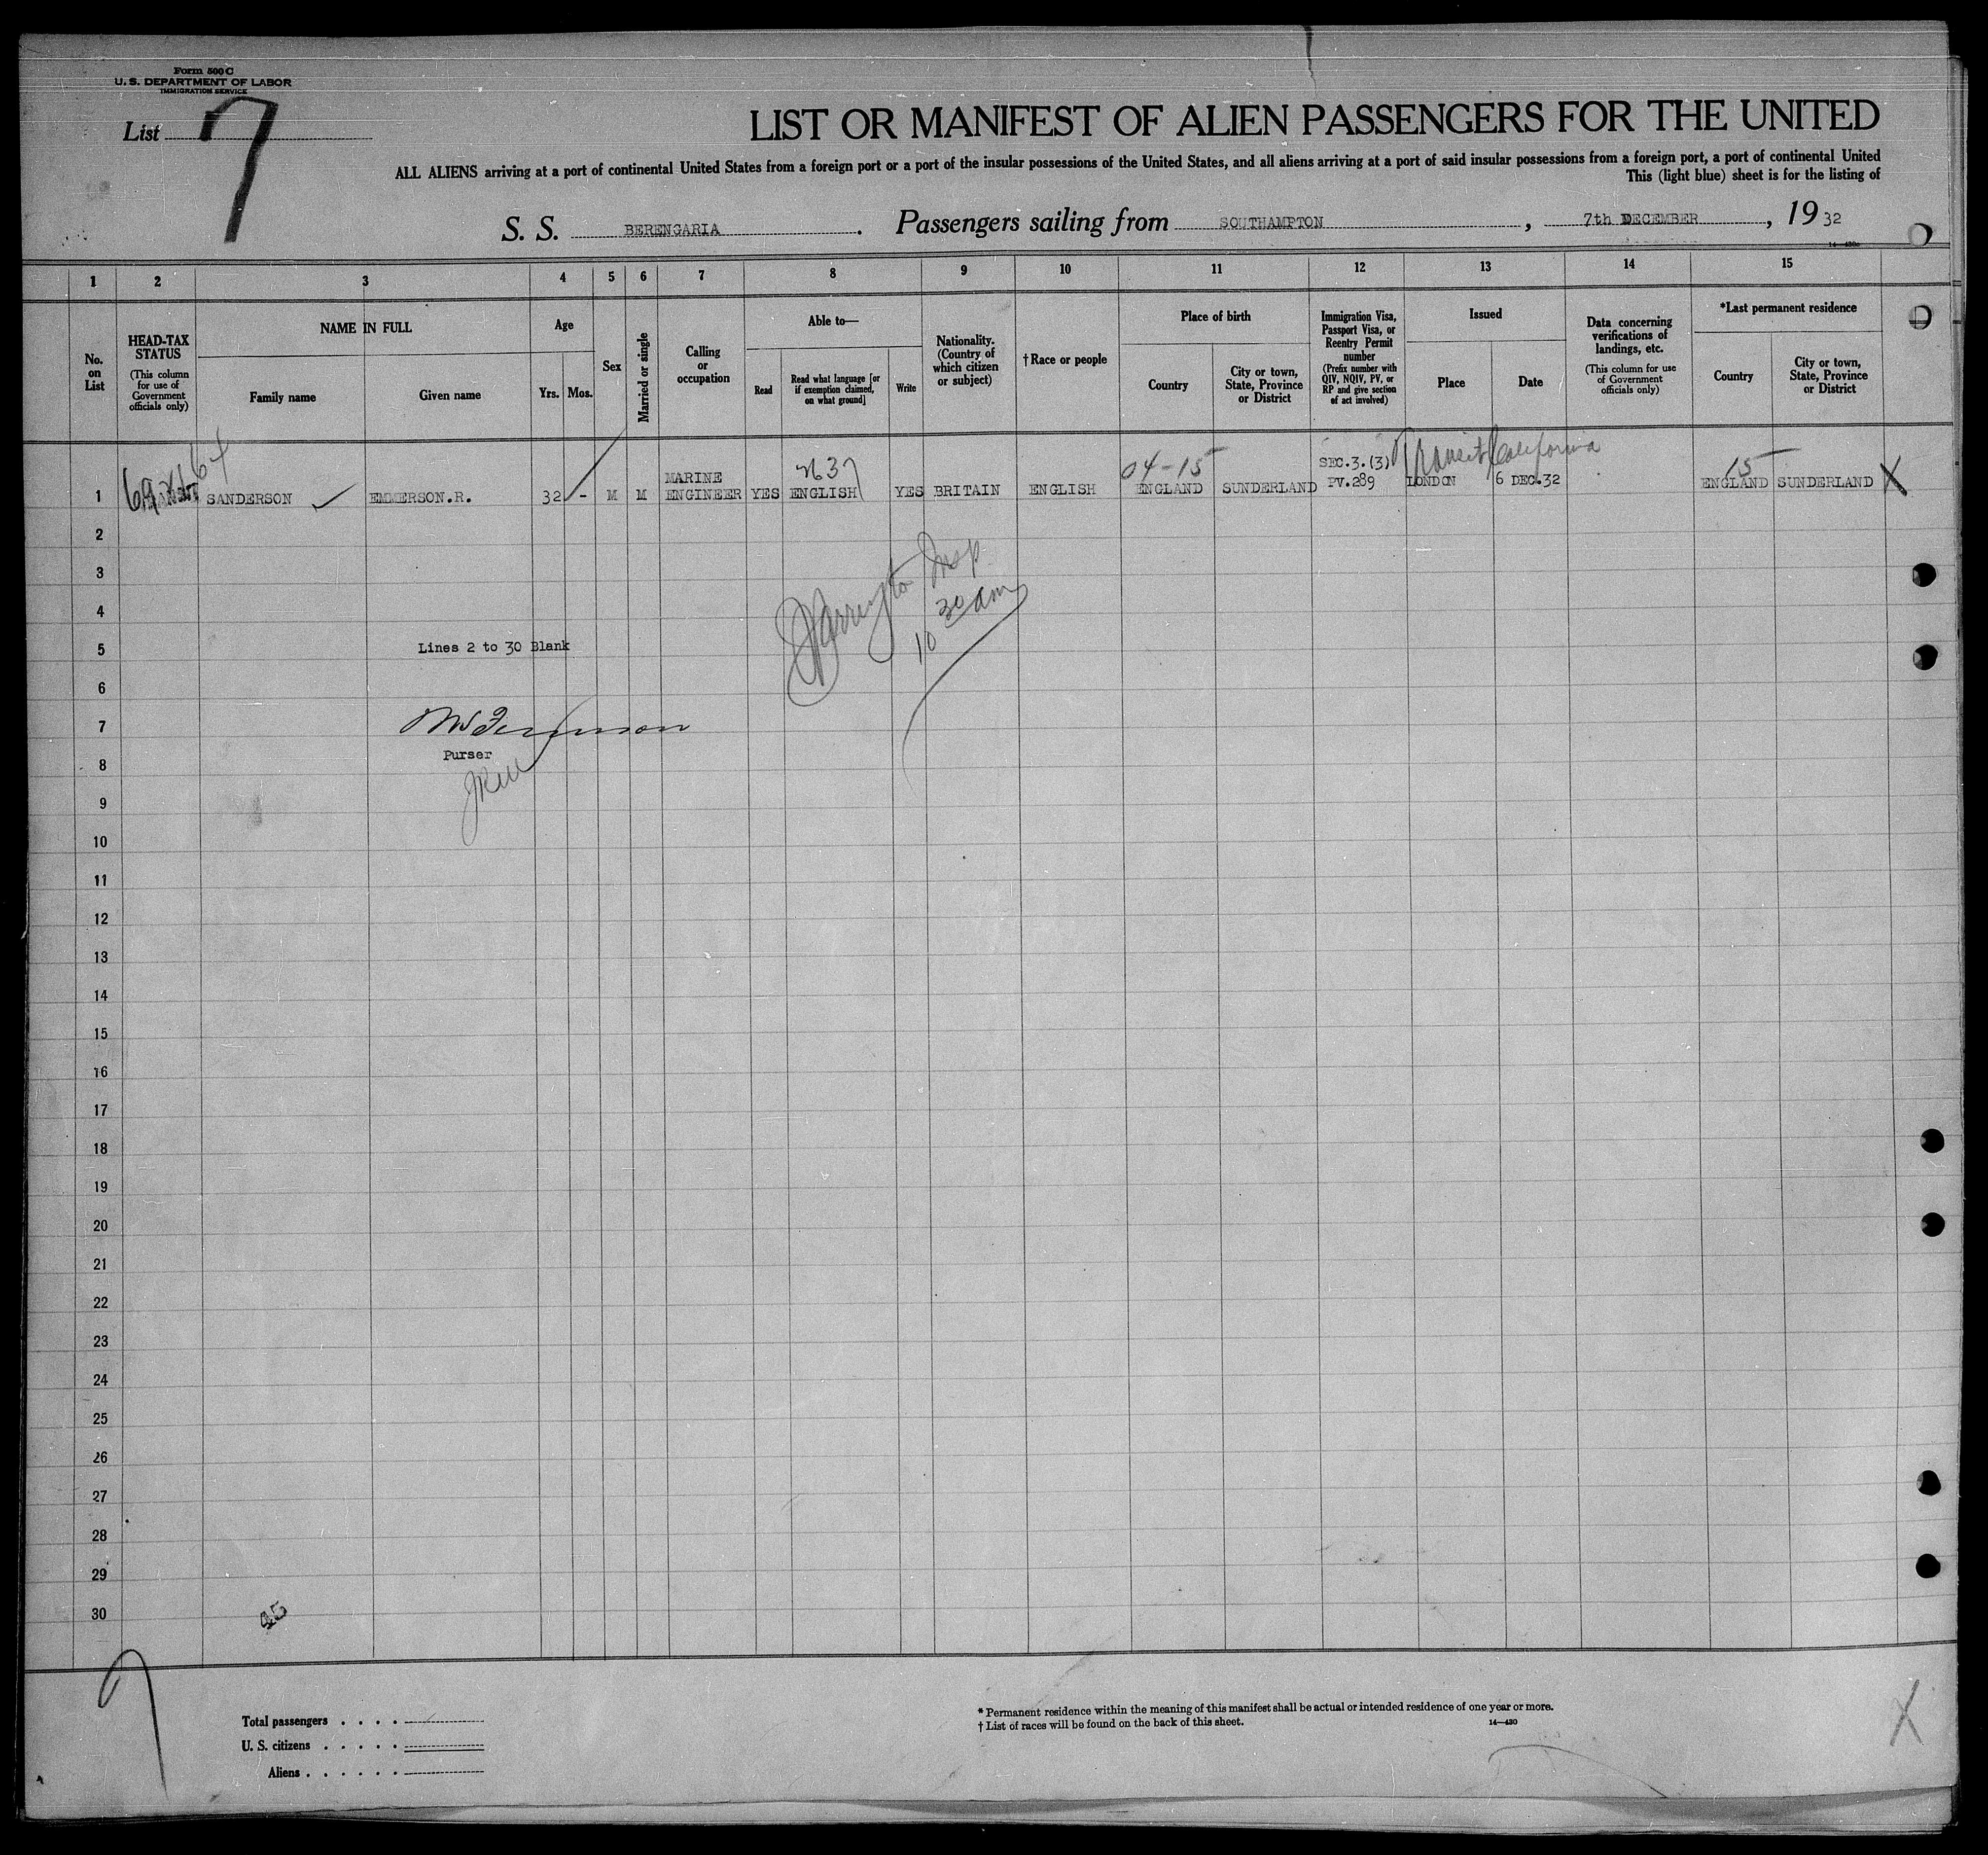 Form 500 C
U. S. DEPARTMENT OF LABOR
IMMIGRATION SERVICE
List 7
LIST OR MANIFEST OF ALIEN PASSENGERS FOR THE UNITED
ALL ALIENS arriving at a port of continental United States from a foreign port or a port of the insular possessions of the United States, and all aliens arriving at a port of said insular possessions from a foreign port, a port of continental United
This (light blue) sheet is for the listing of
S. S. BERENGARIA. Passengers sailing from SOUTHAMPTON, 7th DECEMBER, 1932
1 2 3 4 5 6 7 8 9 10 11 12 13 14 15
No. on List
HEAD-TAX STATUS
(This column for use of Government officials only)
NAME IN FULL
Family name
Given name
Age
Yrs. Mos.
Sex
Married or single
Calling or occupation
Able to—
Read
Read what language [or if exemption claimed, on what ground]
Write
Nationality. (Country of which citizen or subject)
†Race or people
Place of birth
Country
City or town, State, Province or District
Immigration Visa, Passport Visa, or Reentry Permit number
(Prefix number with QIV, NQIV, PV, or RP and give section of act involved)
Issued
Place
Date
Data concerning verifications of landings, etc.
(This column for use of Government officials only)
*Last permanent residence
Country
City or town, State, Province or District
64 2637 04-15 Transit California 15
1 SANDERSON EMMERSON.R. 32 - M M MARINE ENGINEER YES ENGLISH YES BRITAIN ENGLISH ENGLAND SUNDERLAND SEC.3.(3) PV.289 LONDON 6 DEC.32 ENGLAND SUNDERLAND X
2
3
Insp
4
10 30 am
5 Lines 2 to 30 Blank
6
7
Purser
8
9
10
11
12
13
14
15
16
17
18
19
20
21
22
23
24
25
26
27
28
29
30
45
7
Total passengers . . . .
U. S. citizens . . . . .
Aliens . . . . . .
* Permanent residence within the meaning of this manifest shall be actual or intended residence of one year or more.
† List of races will be found on the back of this sheet. 14—430
X